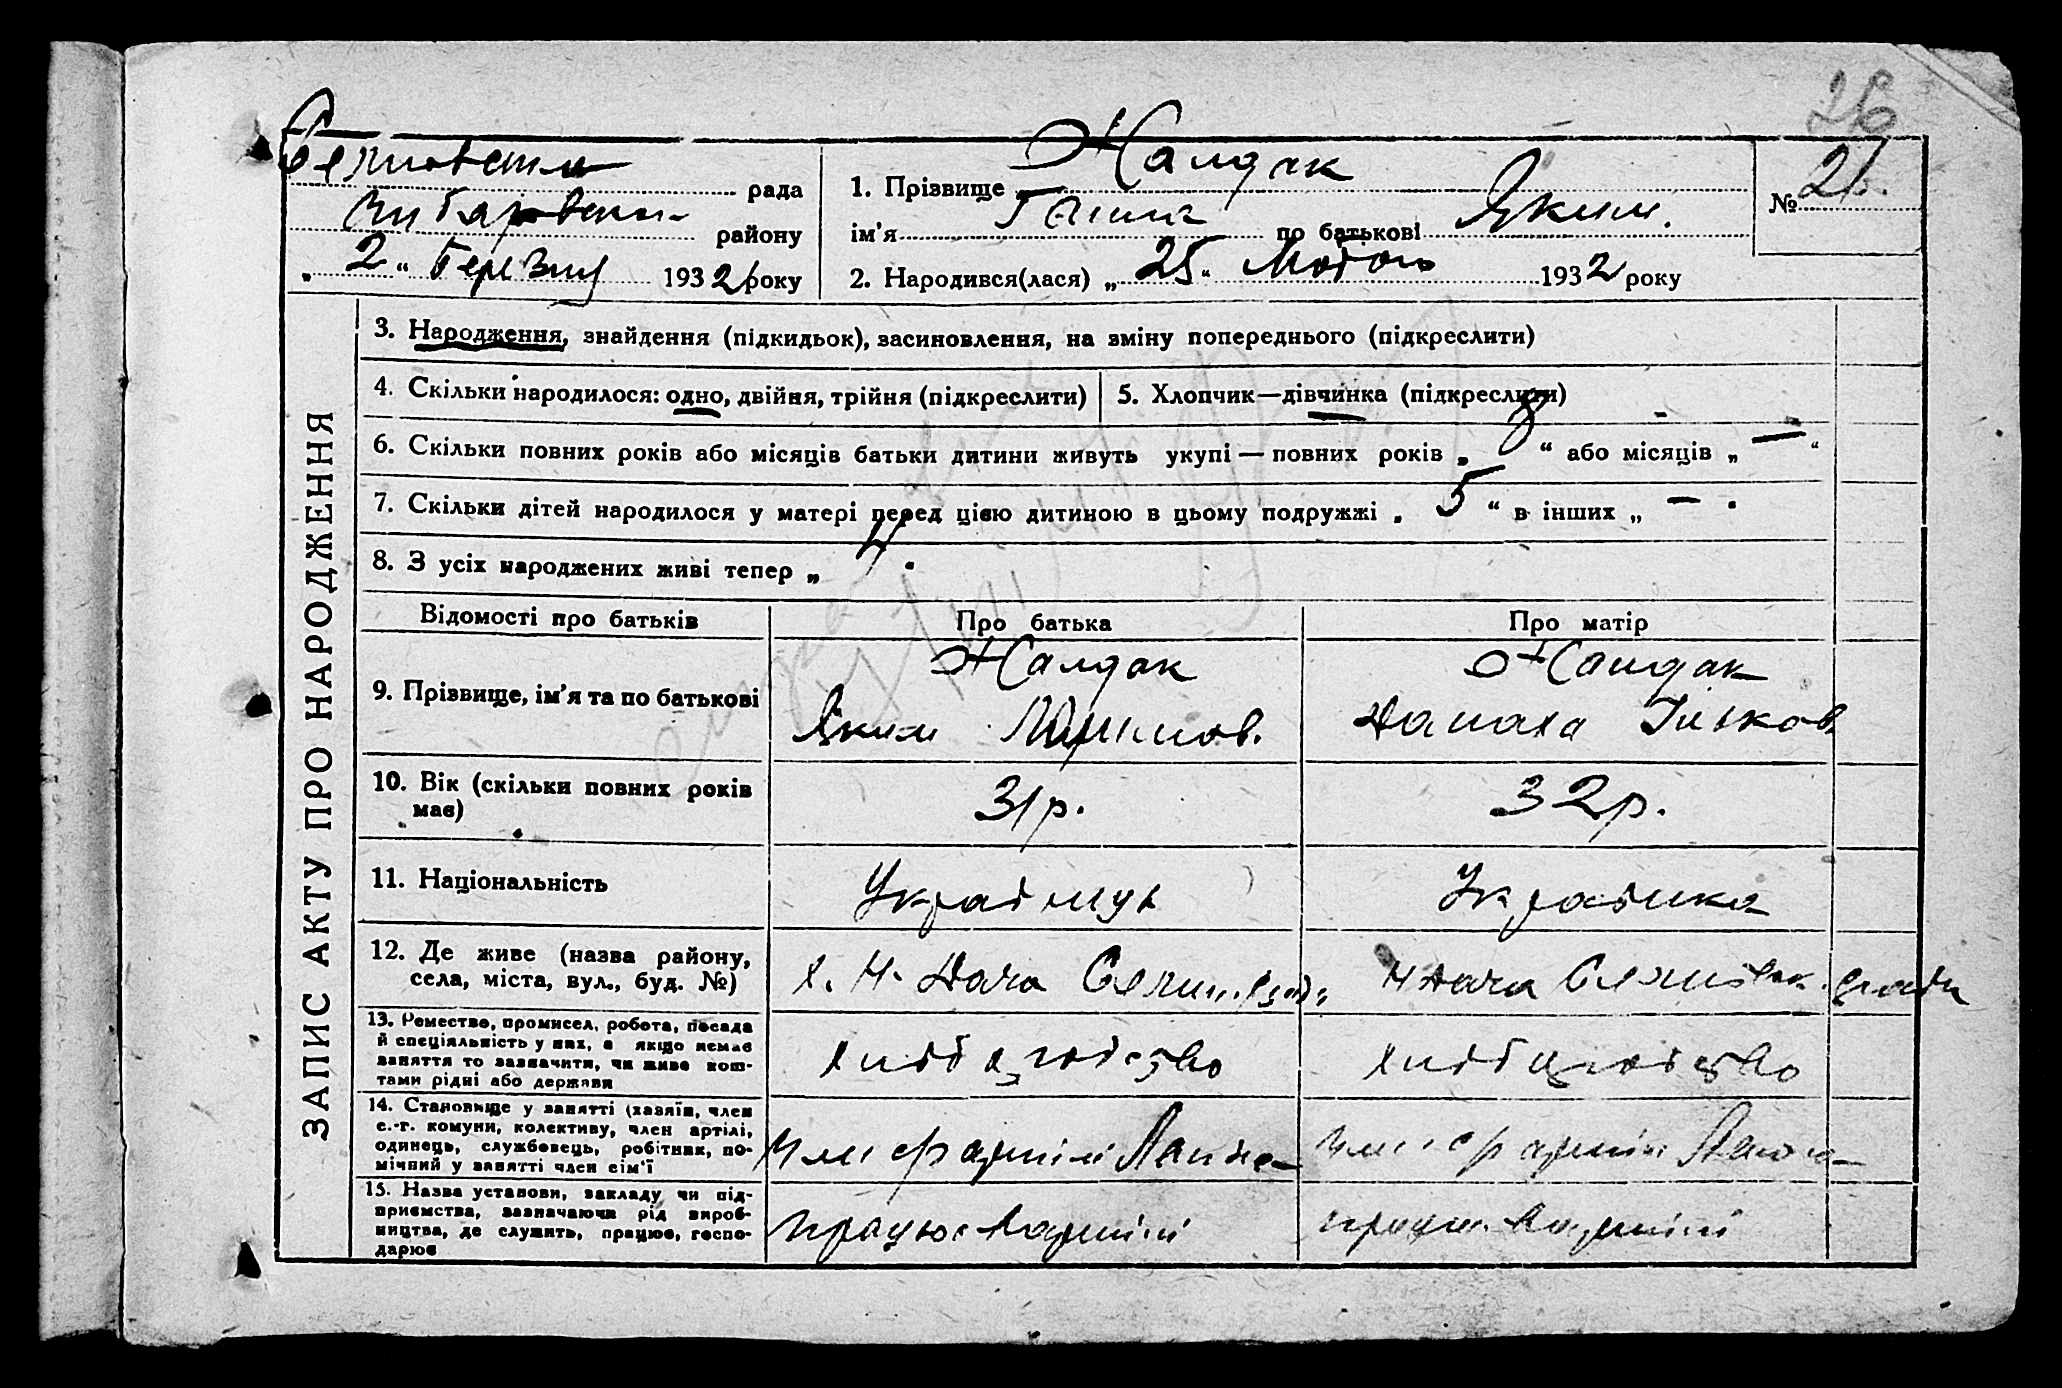 26
рада
району
„ 2 “ Березня 1932 року
1. Прізвище Жалдак
ім'я Ганна по батькові Яким.
№ 26.
2. Народився(лася) „ 25 “ Лютого 1932 року
ЗАПИС АКТУ ПРО НАРОДЖЕННЯ
3. Народження, знайдення (підкидьок), засиновлення, на зміну попереднього (підкреслити)
4. Скільки народилося: одно, двійня, трійня (підкреслити)
5. Хлопчик—дівчинка (підкреслити)
6. Скільки повних років або місяців батьки дитини живуть укупі — повних років „ 8 “ або місяців „ — “
7. Скільки дітей народилося у матері перед цією дитиною в цьому подружжі „ 5 “ в інших „ — “
8. З усіх народжених живі тепер „ 4 “
Відомості про батьків
Про батька
Про матір
9. Прізвище, ім'я та по батькові
Жалдак
Яким
Жалдак
Палажка Ільков.
10. Вік (скільки повних років має)
31 р.
32 р.
11. Національність
Українець
Українка
12. Де живе (назва району, села, міста, вул., буд. №)
х. Н. Дача
Н Дача ради
13. Ремество, промисел, робота, посада й спеціяльність у них, а якщо немає заняття то зазначити, чи живе коштами рідні або держави
хліборобство
хліборобство
14. Становище у занятті (хазяїн, член с.-г. комуни, колективу, член артілі, одинець, службовець, робітник, помічний у занятті член сім'ї
член с/г артілі
член с/г артілі
15. Назва установи, закладу чи підприємства, зазначаючи рід виробництва, де служить, працює, господарює
працює в артілі
працює в артілі